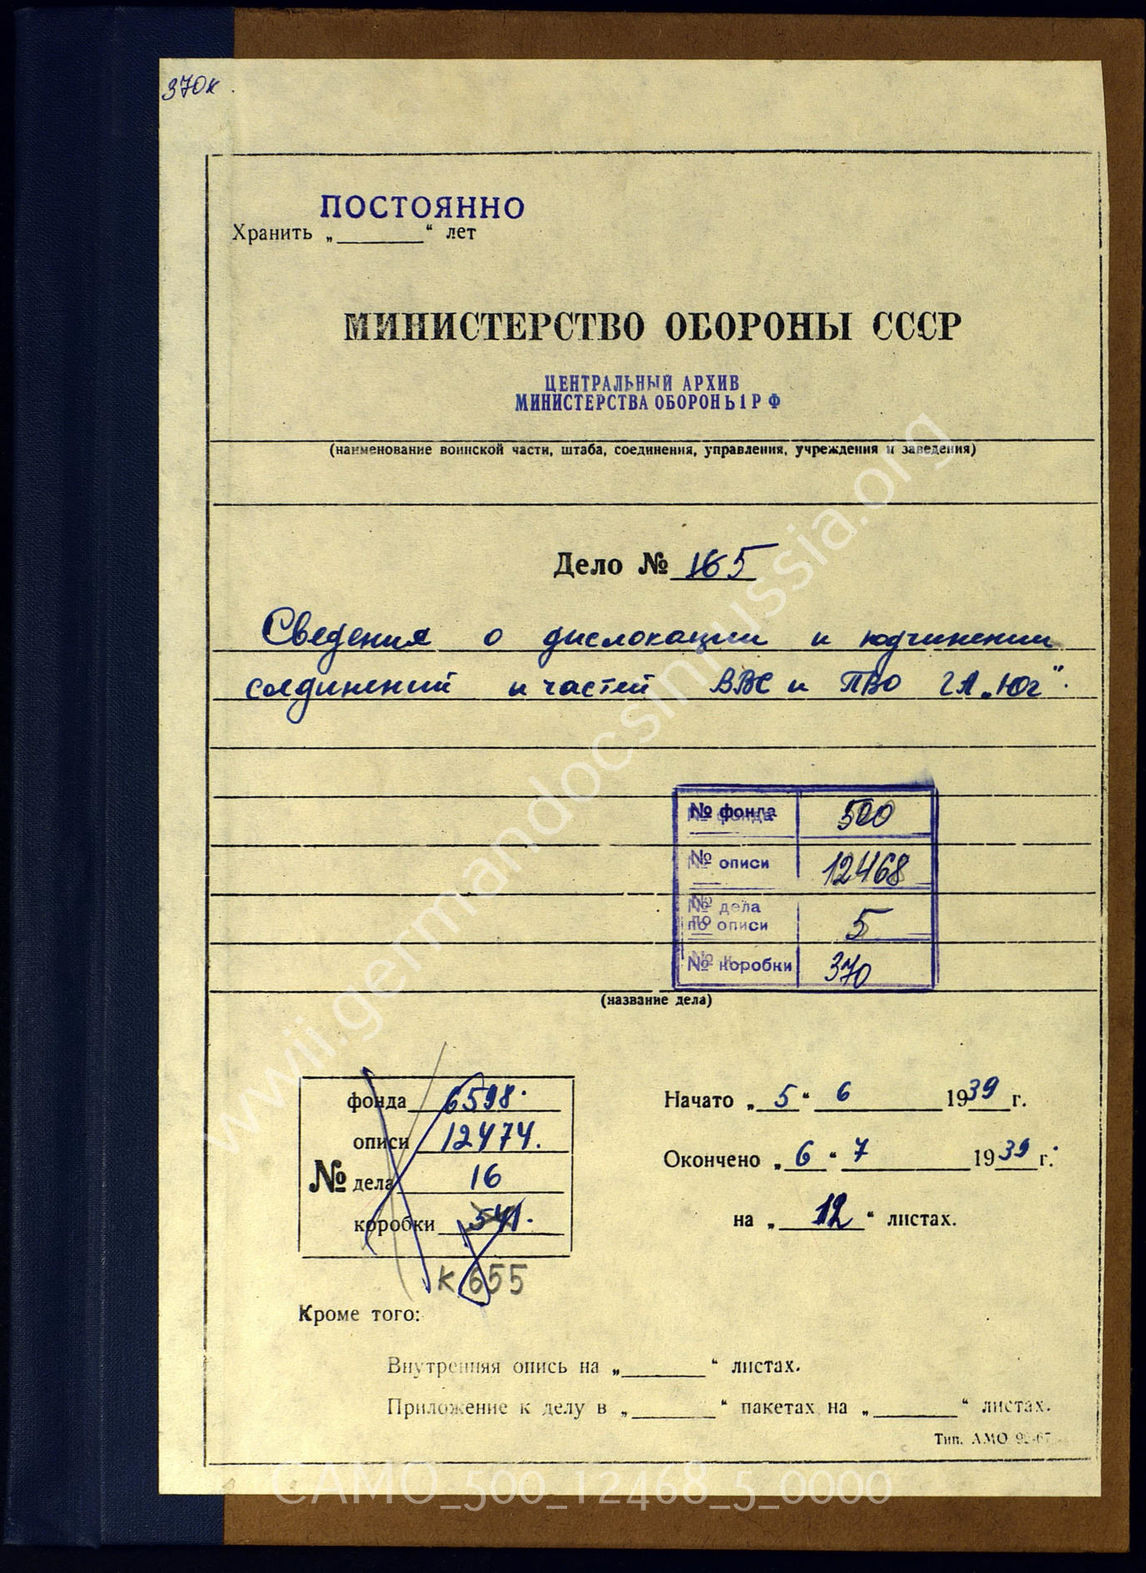 370к.
ПОСТОЯННО
Хранить „______“ лет
МИНИСТЕРСТВО ОБОРОНЫ СССР
ЦЕНТРАЛЬНЫЙ АРХИВ
МИНИСТЕРСТВА ОБОРОНЫ РФ
(наименование воинской части, штаба, соединения, управления, учреждения и заведения)
Дело № 165
Сведения о дислокации и подчинении
соединений и частей ВВС и ПВО ГА „Юг“.
№ фонда 500
№ описи 12468
№ дела
по описи 5
№ коробки 370
(название дела)
фонда 6598.
описи 12474.
№ дела 16
коробки 541.
к 655
Начато „5“ 6 1939 г.
Окончено „6“ 7 1939 г.
на „12“ листах.
Кроме того:
Внутренняя опись на „______“ листах.
Приложение к делу в „______“ пакетах на „______“ листах.
Тип. АМО
wwii.germandocsinrussia.org
CAMO_500_12468_5_0000